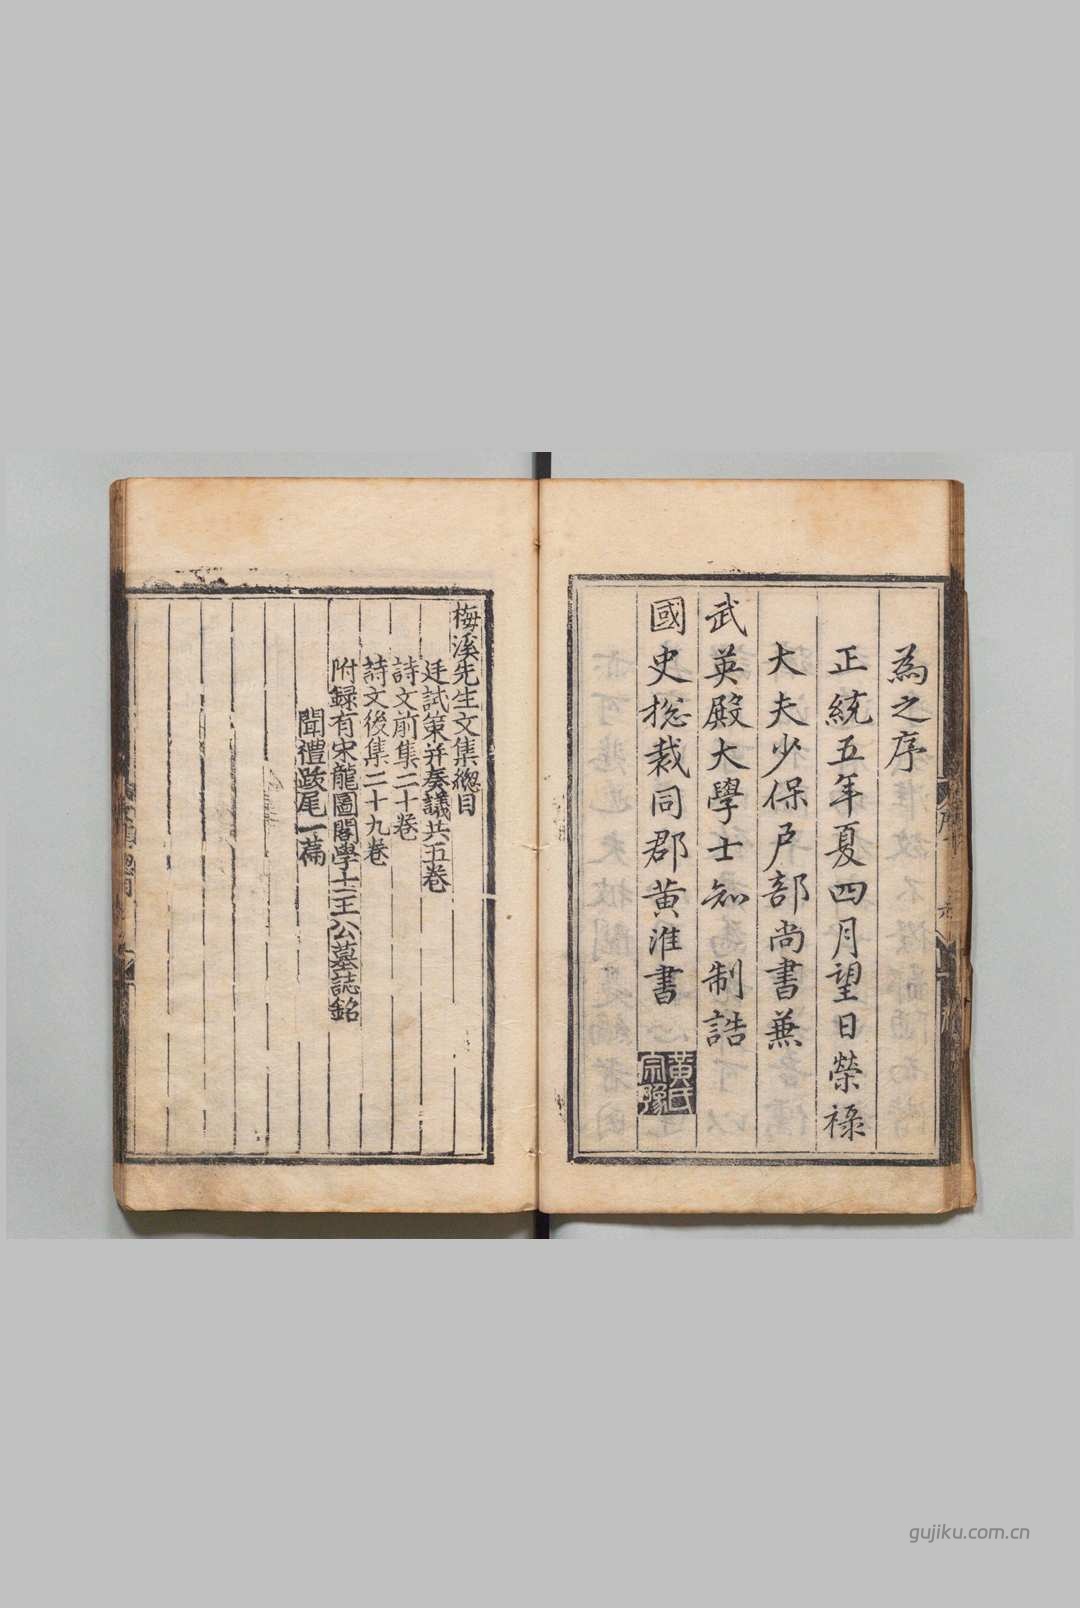 為之序
正統五年夏四月望日榮祿
大夫少保戶部尚書兼
武英殿大學士知 制誥
國史総裁同郡黃淮書
黃氏
宗豫
梅溪先生文集緫目
廷試策并奏議共五卷
詩文前集二十卷
詩文後集二十九卷
附録有宋龍圖閣學士王公墓誌銘
聞禮跋尾一篇
gujiku.com.cn